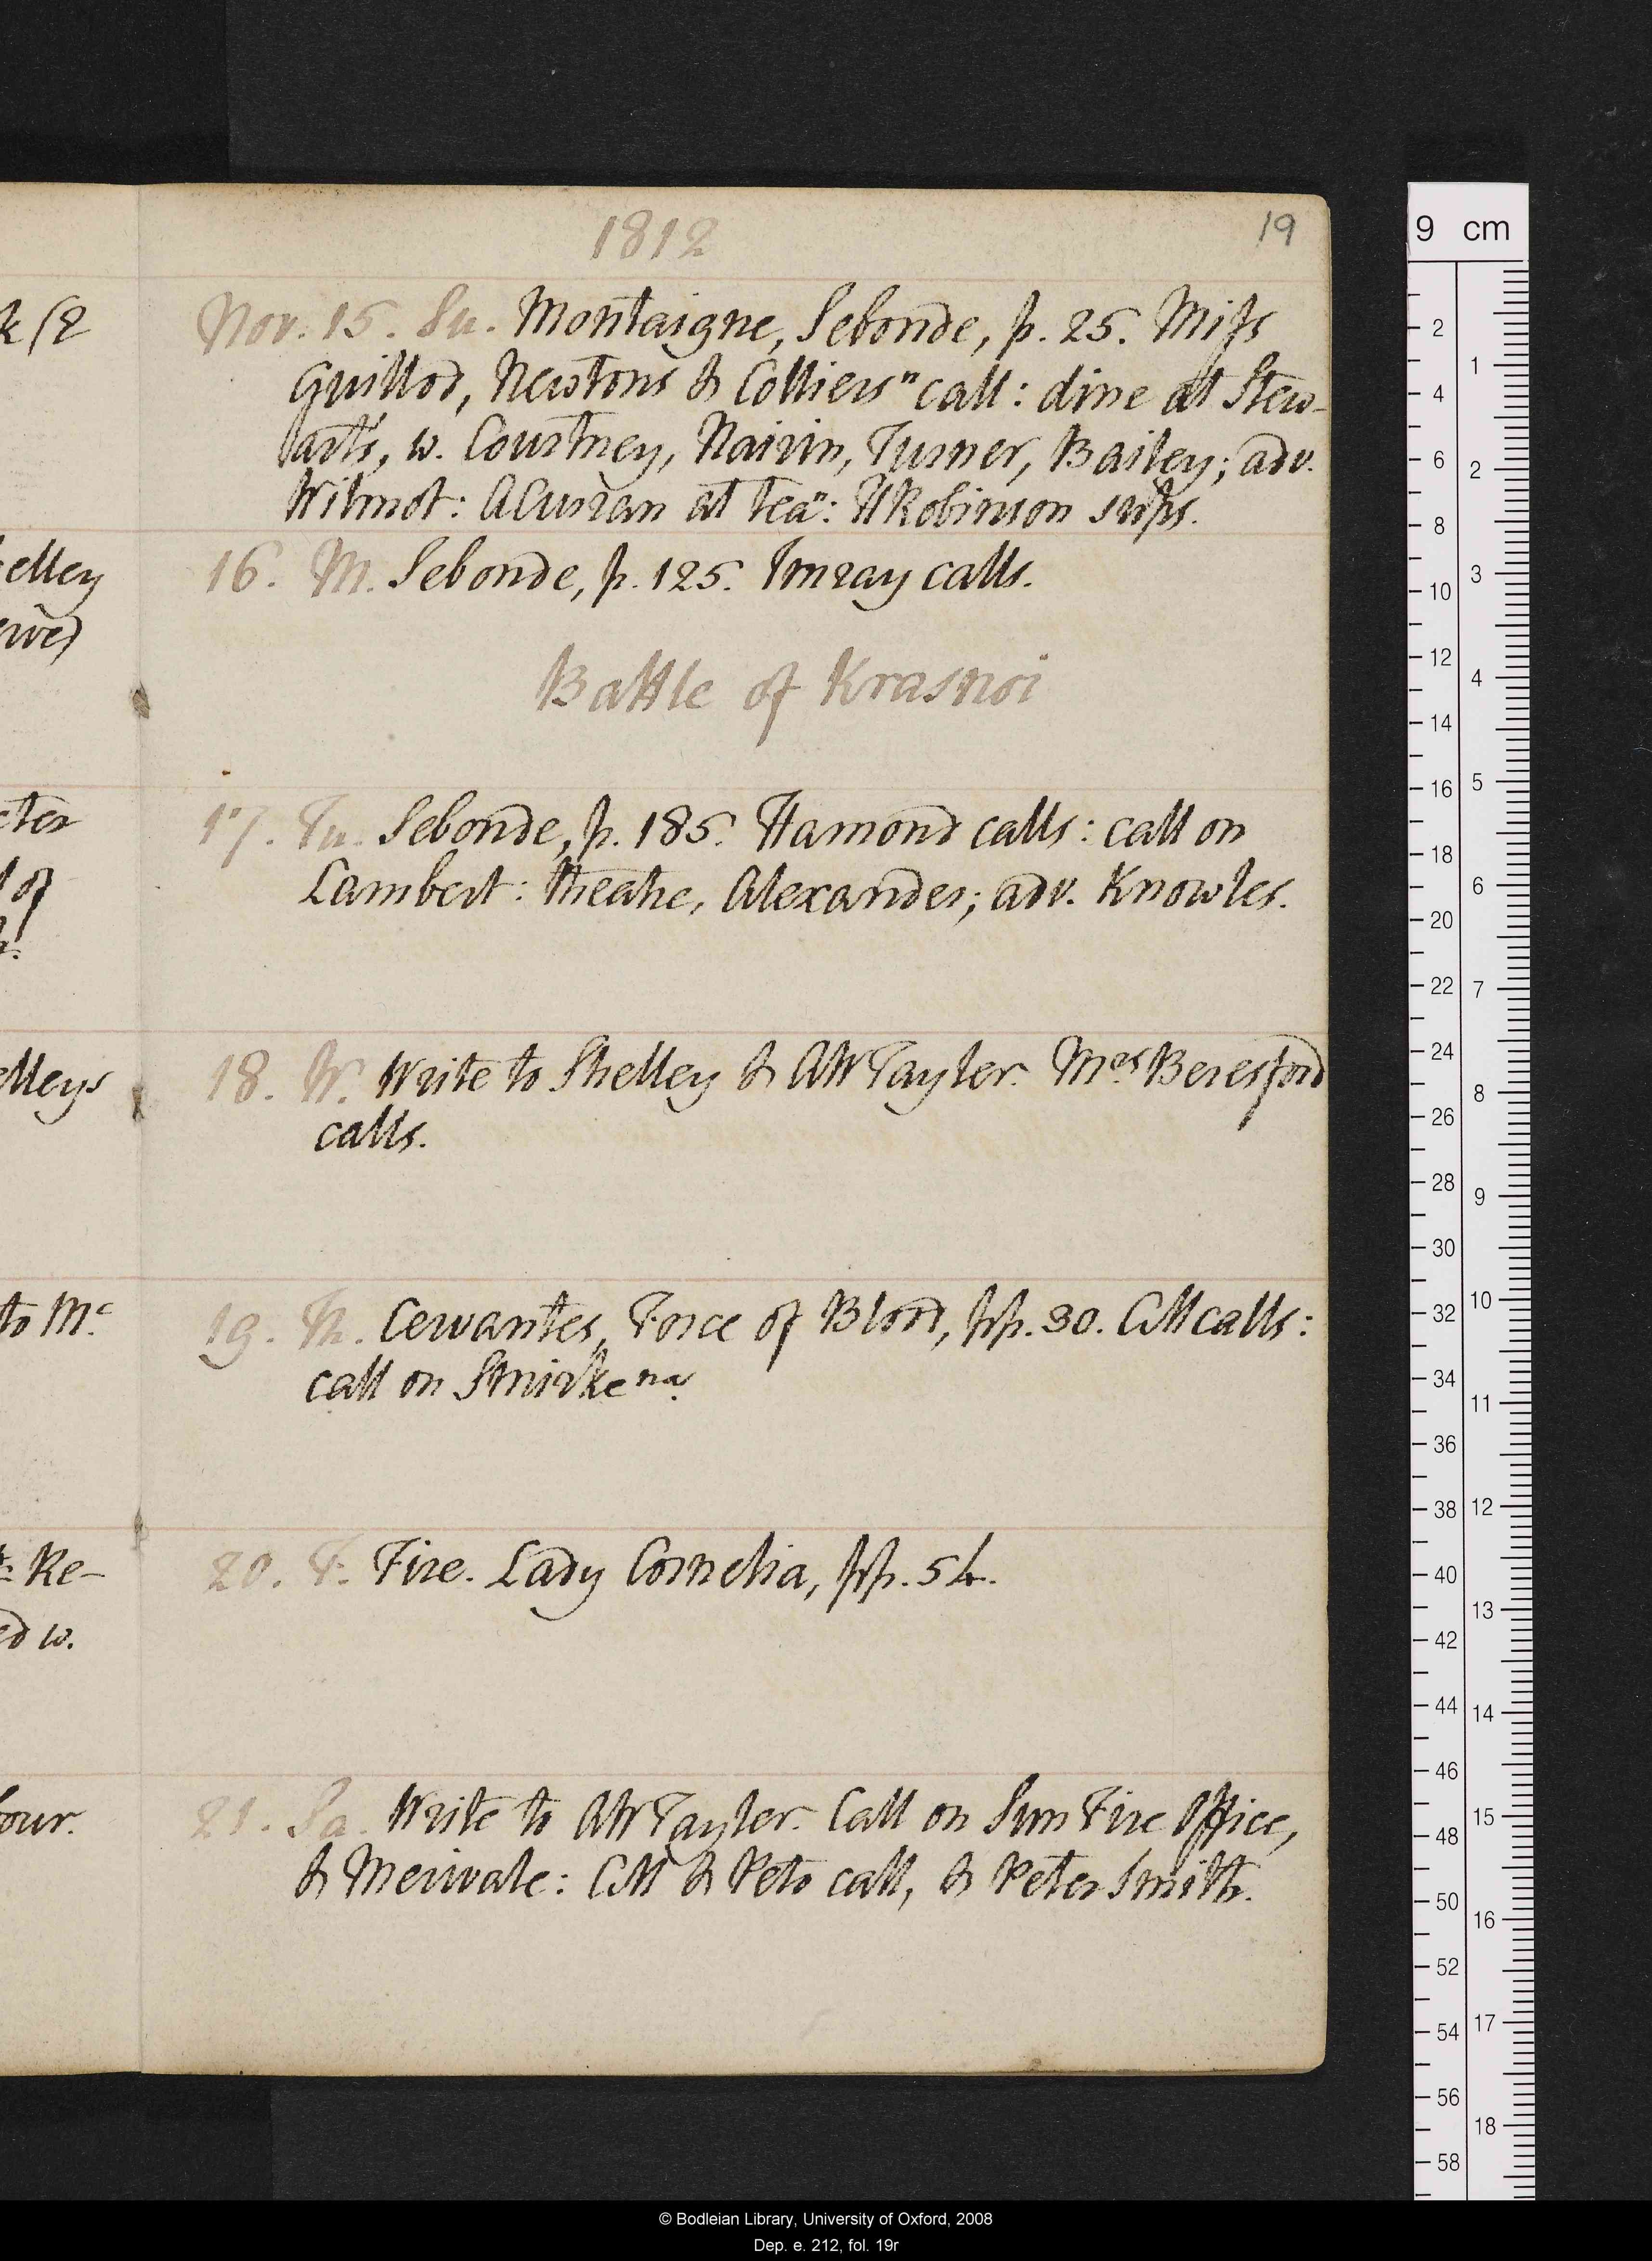 1812
19
Nov. 15. Su. Montaigne, Sebonde, p. 25. Miſs
Guillod, Newtons & Colliers" call: dine at Stew-
art's, w. Courtney, Nairin, Turner, Bailey; adv.
Wilmot: ACurran at tea": HRobinson sups.
16. M. Sebonde, p. 125. Imray calls.
Battle of Krasnoi
17. Tu. Sebonde, p. 185. Hamond calls: call on
Lambert: theatre, Alexander; adv. Knowles.
18. W. Write to Shelley & AWTayler. Mrs Beresford
calls.
19. Th. Cervantes, Force of Blood, pp. 30. CM calls:
call on Smirke na.
20. F. Fire. Lady Cornelia, pp. 54.
21. Sa. Write to AWTayler. Call on Sun Fire Office,
& Merivale: CM & Peto call, & Peter Smith.
elley
eived
eter
l of
elleys
to Mc
Re-
ed w.
our.
9 cm
2
4
6
8
10
12
14
16
18
20
22
24
26
28
30
32
34
36
38
40
42
44
46
48
50
52
54
56
58
1
2
3
4
5
6
7
8
9
10
11
12
13
14
15
16
17
18
© Bodleian Library, University of Oxford, 2008
Dep. e. 212, fol. 19r